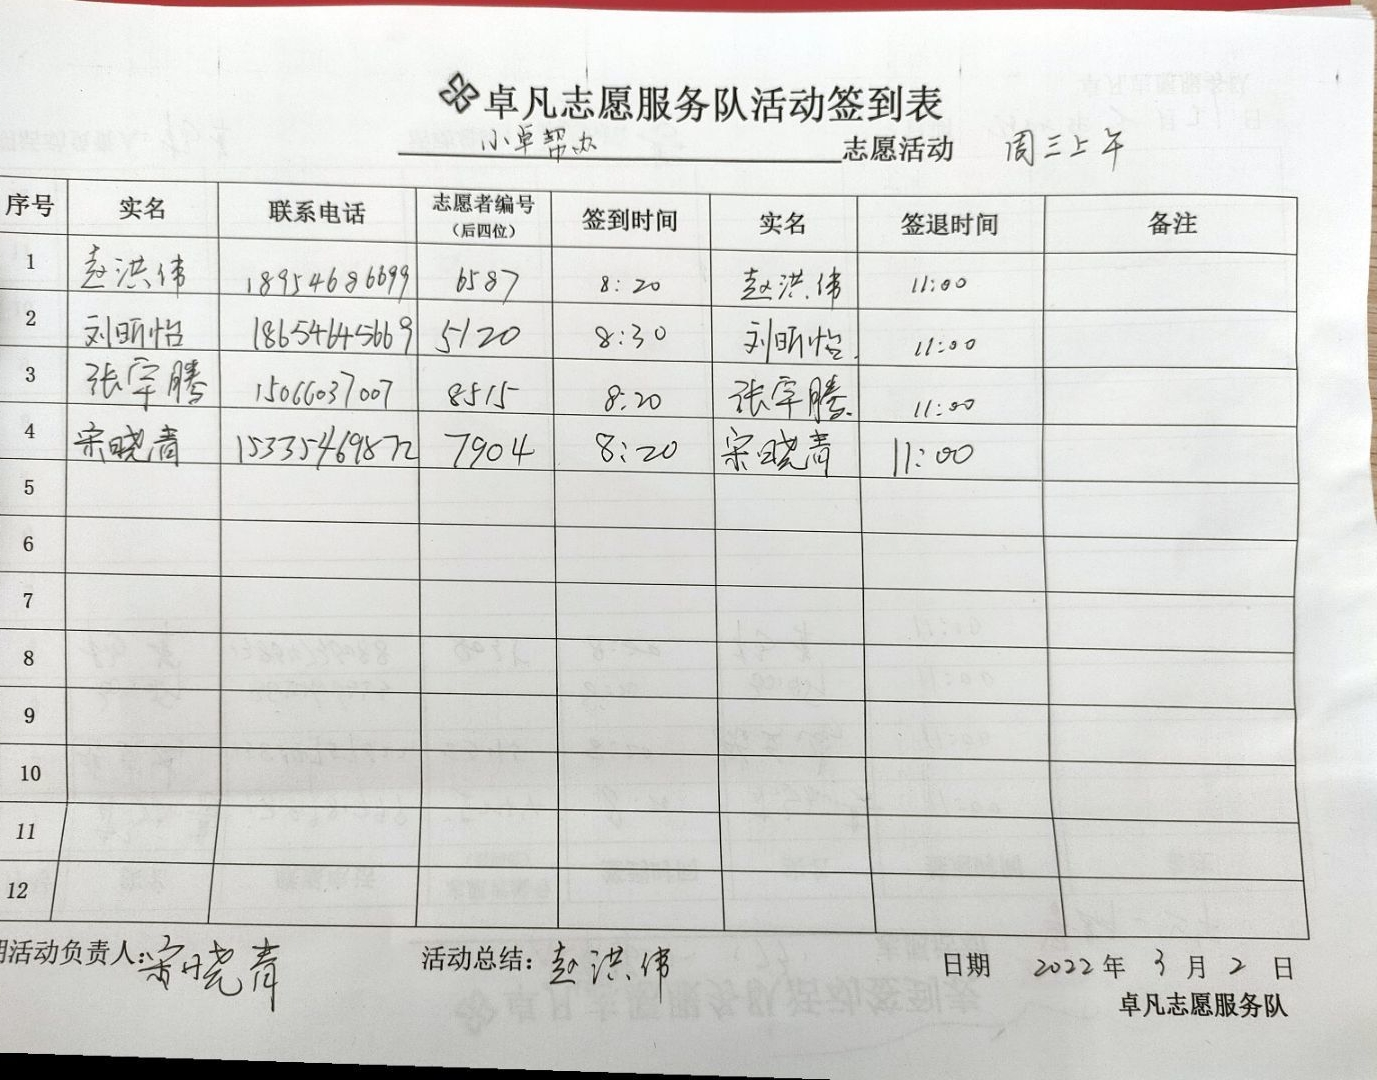 卓凡志愿服务队活动签到表
小卓帮办志愿活动 周三上午
序号 实名 联系电话 志愿者编号（后四位） 签到时间 实名 签退时间 备注
1 赵洪伟 18954686699 6587 8:20 赵洪伟 11:00
2 刘昕怡 18654645669 5120 8:30 刘昕怡 11:00
3 张宇腾 15066037007 8515 8:20 张宇腾 11:00
4 宋晓青 15335469872 7904 8:20 宋晓青 11:00
5
6
7
8
9
10
11
12
期活动负责人:宋晓青 活动总结:赵洪伟 日期 2022年3月2日
卓凡志愿服务队